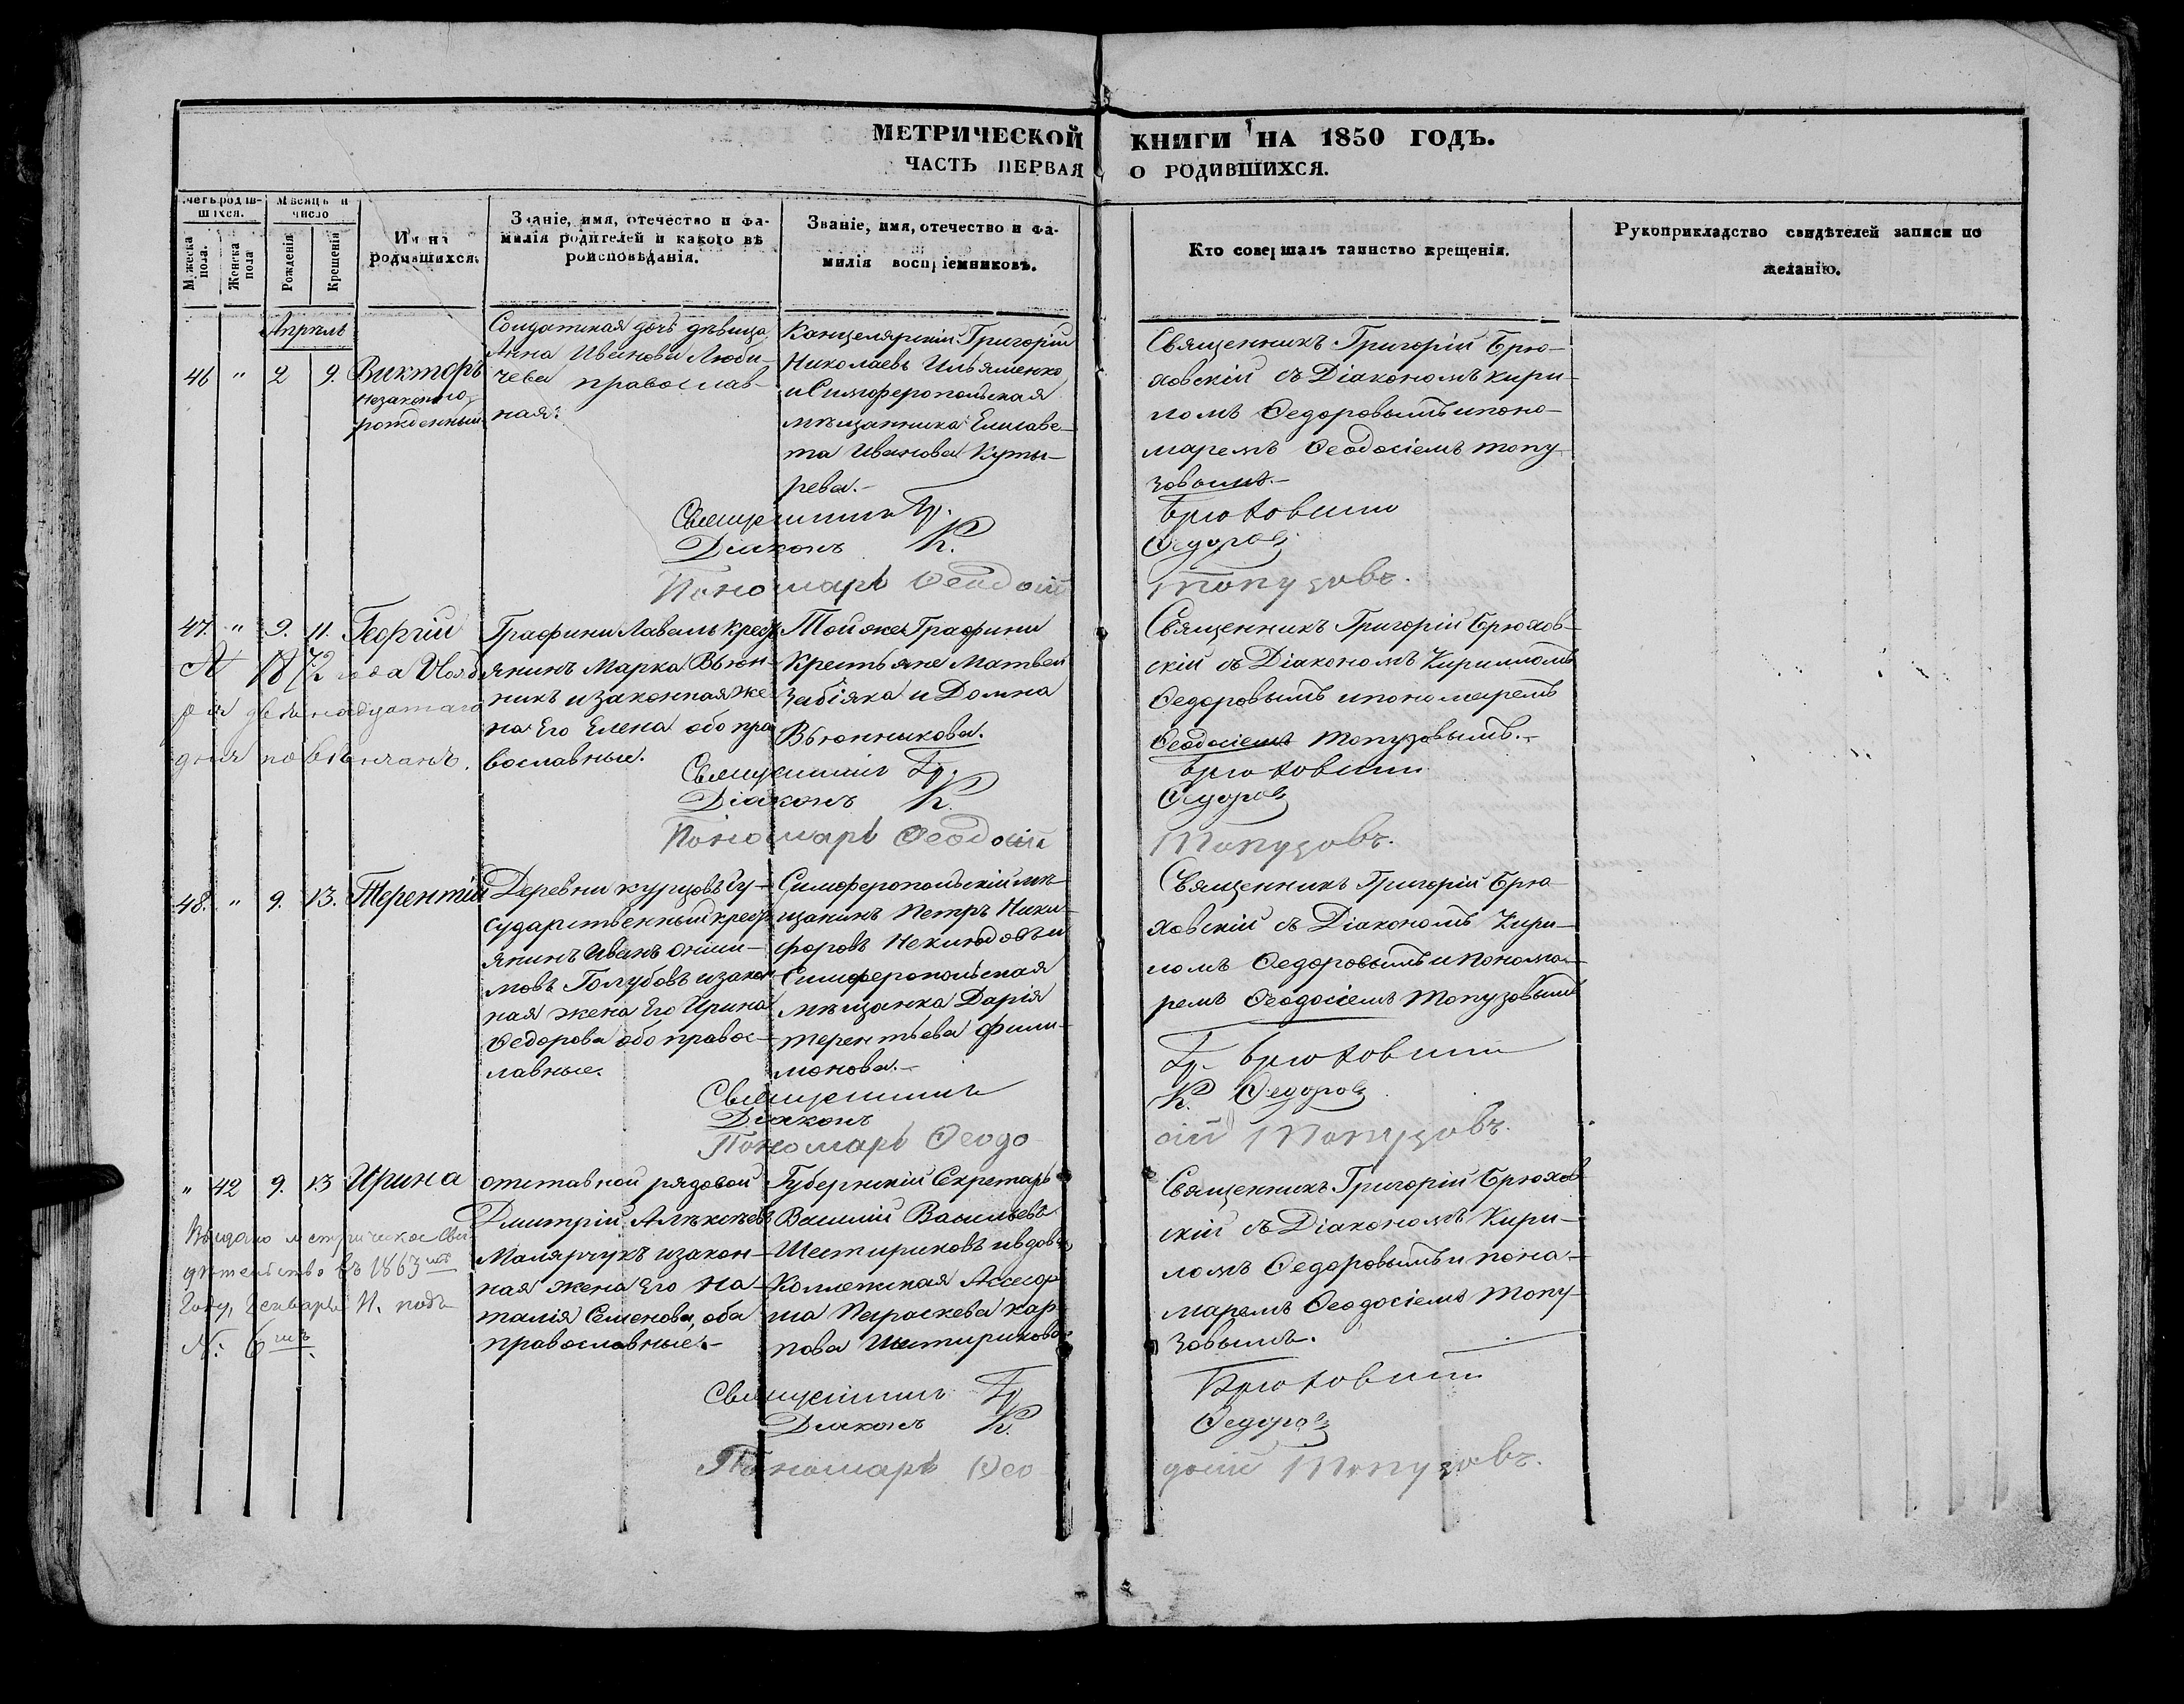 МЕТРИЧЕСКОЙ КНИГИ НА 1850 ГОДЪ.
ЧАСТЬ ПЕРВАЯ О РОДИВШИХСЯ.
Счетъ родив-
шихся.
Мужеска пола.
Женска пола
Мѣсяцъ и
число
Рожденія
Крещенія
Имена
родившихся.
Званіе, имя, отечество и фа-
милія родителей и какого вѣ
роисповѣданія.
Званіе, имя, отечество и фа-
милія воспріемниковъ.
Кто совершалъ таинство крещенія.
Рукоприкладство свидѣтелей записи по
желанію.
Апрѣль
46 " 2 9. Викторъ
незаконно
рожденный
Солдатская дочь дѣвица
Анна Иванова Люби-
чева православ-
ная.
Канцелярскій Григорій
Николаевъ Ильяшенко
и Симферопольская
мѣщаннка Елисаве-
та Иванова Куты-
рева.-
Священникъ Григорій Брю-
ховскій съ Діакономъ Кири-
ломъ Ѳедоровымъ и поно-
маремъ Ѳеодосіемъ Топу
зовымъ.-
Священникъ Гр. Брюховскій
Діаконъ К. Ѳедоровъ
Пономарь Ѳеодосій Топузовъ.
47. " 9. 11. Георгій
А 1872 года Нояб
ря двенадцатаго
дня повѣнчанъ.
Графини Лаваль крест
янинъ Марка Вьюн-
никъ и законная же
на Его Елена обо пра
вославные.
Той же Графини
Крестьяне Матвей
Забіяка и Домна
Вьюнникова.
Священникъ Григорій Брюхов-
скій съ Діакономъ Кирилломъ
Ѳедоровымъ и пономаремъ
Ѳеодосіемъ Топузовымъ.-
Священникъ Гр. Брюховскій
Діаконъ К. Ѳедоровъ
Пономарь Ѳеодосій Топузовъ.
48. " 9. 13. Терентій
Деревни Курцовъ Гу-
сударственный крест
янинъ Иванъ Ониси-
мовъ Голубовъ и закон
ная жена Его Ирина
Ѳедорова обо правос-
лавные.
Симферопольскій мѣ-
щанинъ Петръ Ники-
форовъ Некиюдовъ и
Симферопольская
мѣщанка Дарія
Терентьева Фили-
монова.-
Священникъ Григорій Брю
ховскій съ Діакономъ Кири-
ломъ Ѳедоровымъ и понома-
ремъ Ѳеодосіемъ Топузовымъ
Священникъ Гр. Брюховскій
Діаконъ К. Ѳедоровъ
Пономарь Ѳеодо сій Топузовъ.
" 42 9. 13 Ирина
Выдано метрическое Сви
дѣтельство въ 1863 мъ
Году, Января 11. подъ
№: 6 мъ.
отставной рядовой
Дмитрій Алѣксѣевъ
Малярчукъ и закон-
ная жена Его На-
талія Семенова, оба
православные.-
Губернскій Секретарь
Василій Васильевъ
Шетириковъ и вдова,
Коллежская Ассесор
ша Параскева Кар
пова Шетирикова
Священникъ Григорій Брюхов
скій съ Діакономъ Кири-
ломъ Ѳедоровымъ и поно-
маремъ Ѳеодосіемъ Топу-
зовымъ.
Священникъ Гр Брюховскій
Діаконъ К. Ѳедоровъ
Пономарь Ѳео досій Топузовъ.